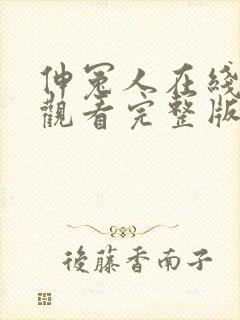 伸冤人在綫
觀看完整版
後藤香南子